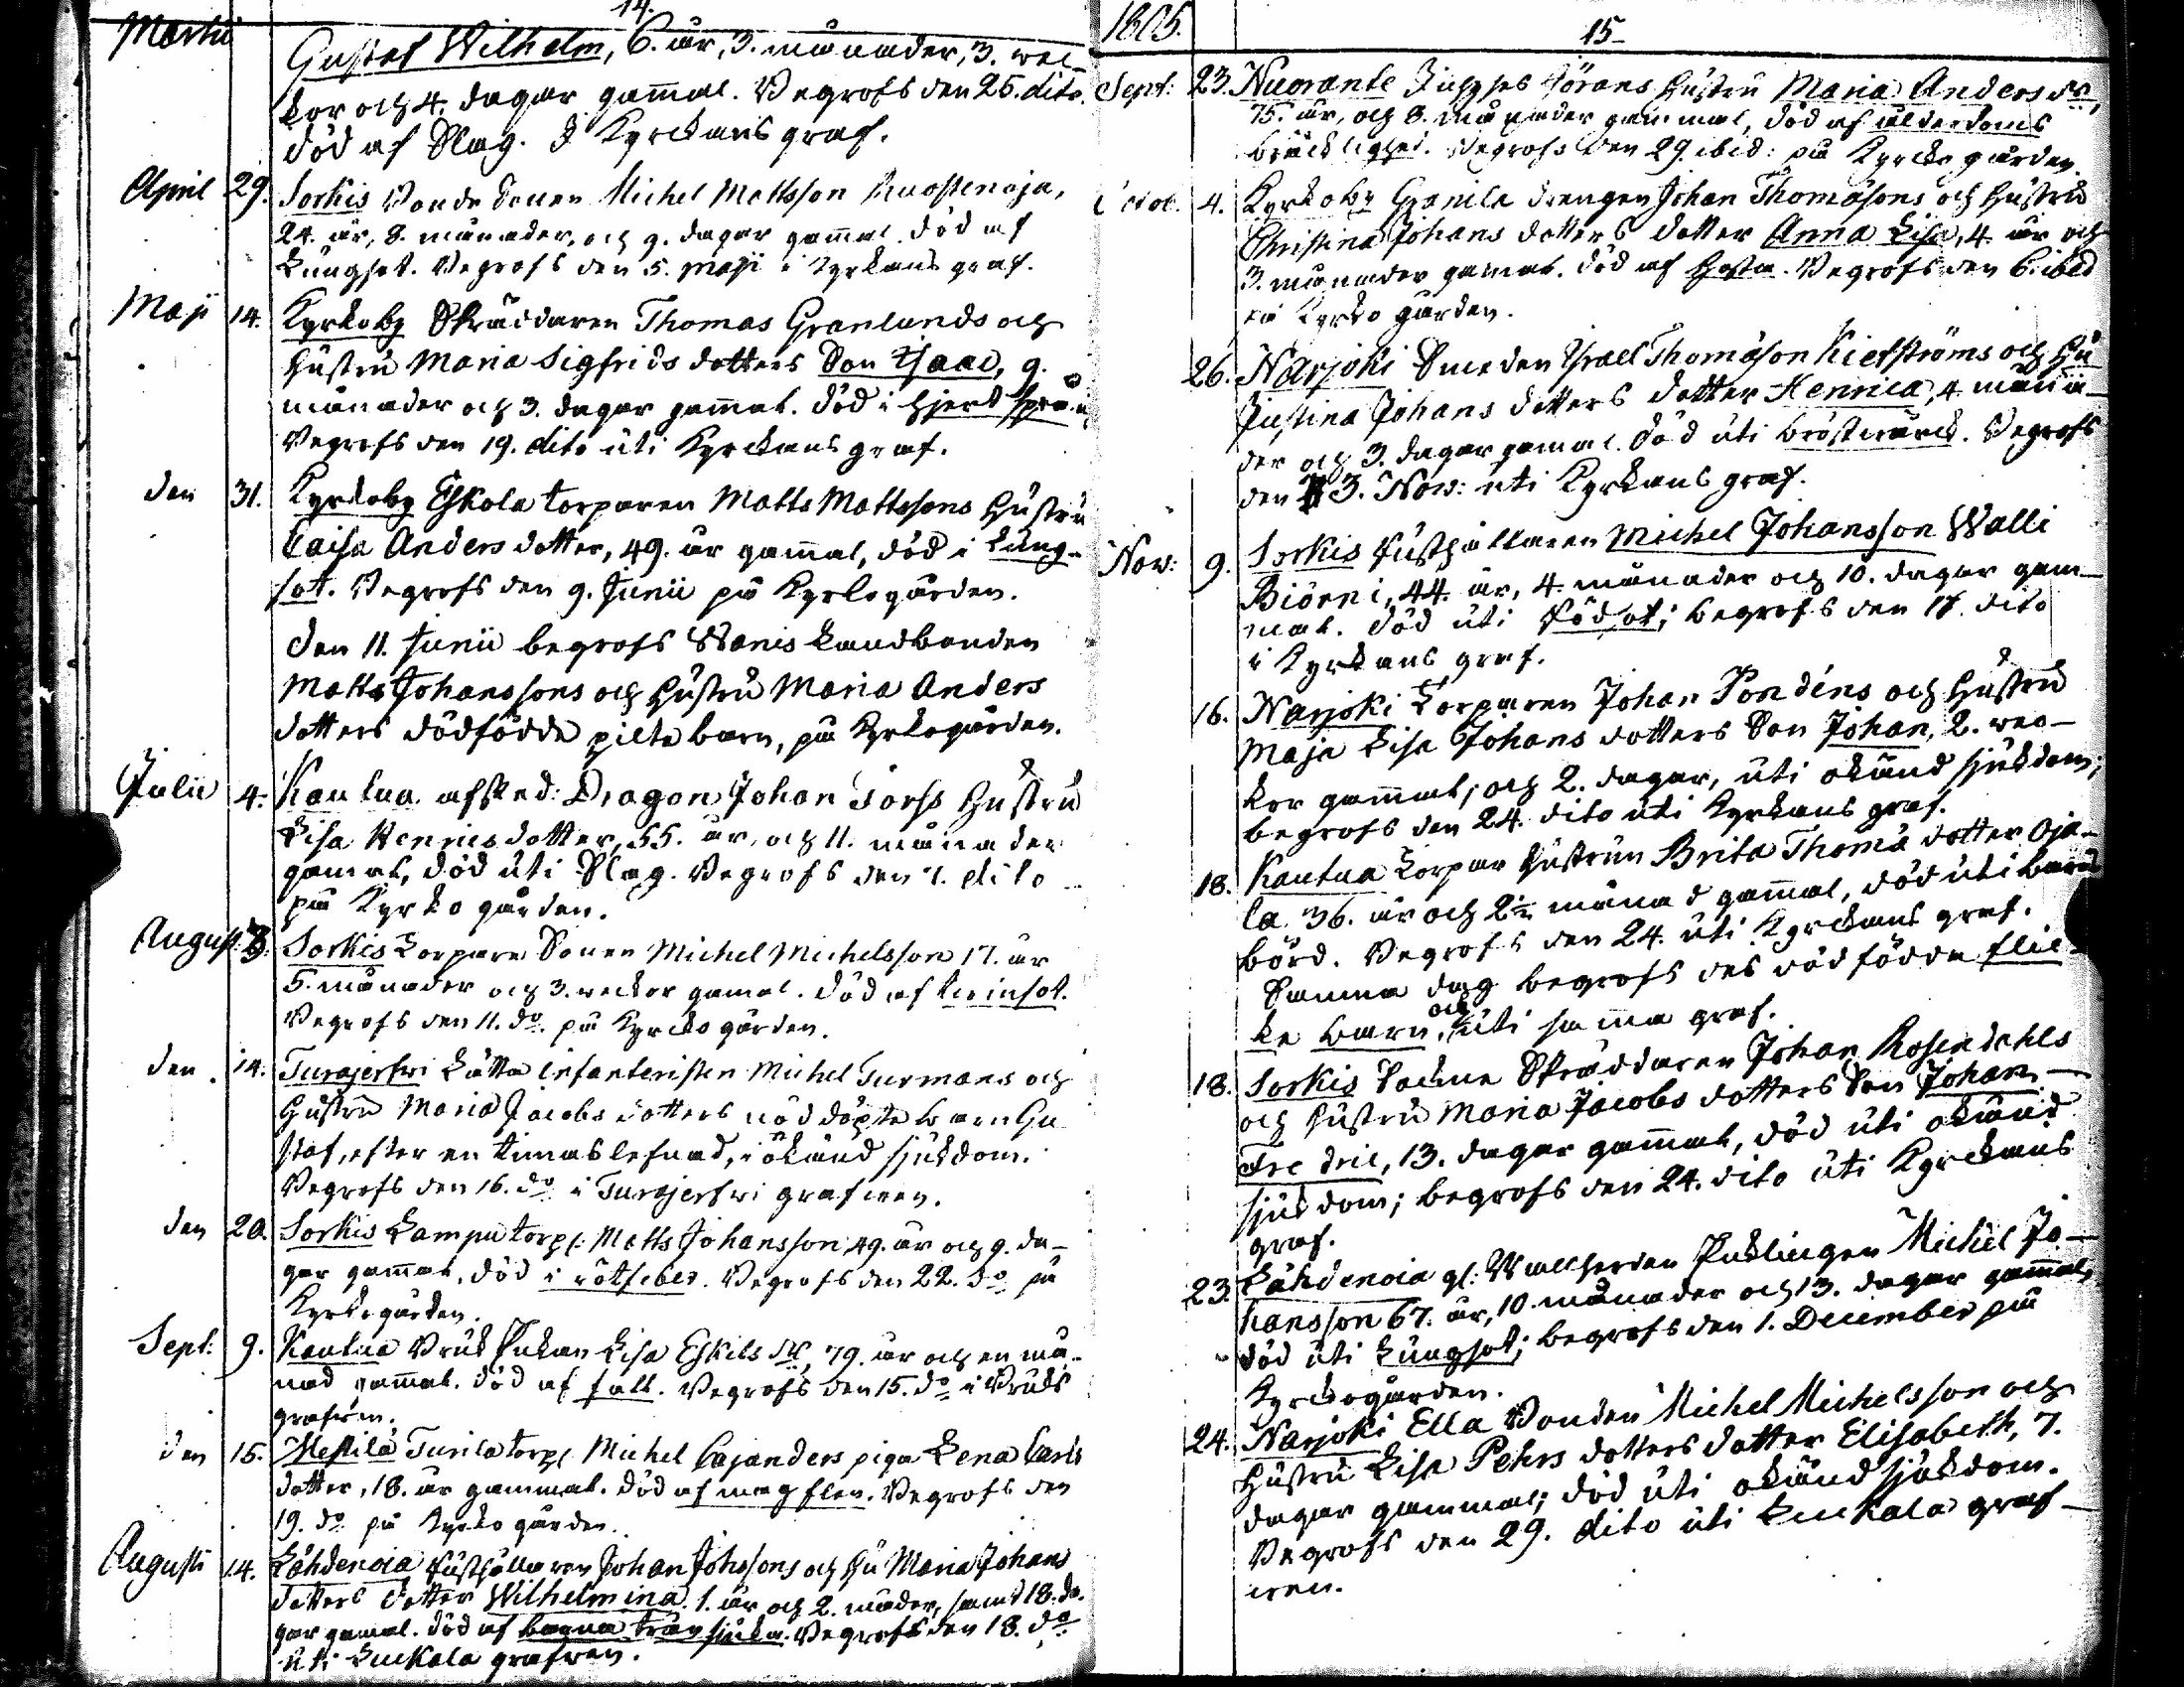 14.
Martii
Gustaf Wilhelm, 6. år, 3. månader, 3. wec-
kor och 4. dagar gam̄al. Begrofs den 25. dito.
död af Slag. I Kyrckans graf.
April 29. Sorkis Bonde Sonen Michel Mattsson Knostenoja,
24. år, 8. månader, och 9. dagar gam̄al. död af
Lungsot. Begrofs den 5. Maji i Kyrkans graf.
Maji 14. Kyrkoby Skräddaren Thomas Granlunds och
hustru Maria Sigfrids dotters Son Isaac, 9.
månader och 3. dagar gam̄al. död i hjert
Begrofs den 19. dito uti Kyrckans graf.
den 31. Kyrkoby Eskola torparen Matts Mattssons hustru
Caisa Anders dotter, 49. år gam̄al, död i Lung-
sot. Begrofs den 9. Junii på Kyrkogården.
Den 11. Junii begrofs Wanis Landbonden
Matts Johanssons och hustru Maria Anders
dotters dödfödde pilte barn, på Kyrkogården.
Julii 4. Kautua afsked: Dragon Johan Torss hustru
Lisa Henrics dotter, 55. år, och 11. månader
gamal, död uti Slag. Begrofs den 7. dito
på Kyrko gården.
August: 8. Sorkis Torpare Sonen Michel Michelsson 17. år
5. månader och 3. weckor gamal. död af twinsot.
Begrofs den 11. do på Kyrcko gården.
den 14. Turajerfwi Lätta Infanteristen Michel Turmans och
hustru Maria Jacobs dotters nöddöpte barn Gu
staf, efter en timas lefnad, i okänd sjukdom.
Begrofs den 16. do i Turajerfwi grafwen.
den 20. Sorkis Lampu torp: Matts Johansson 49. år och 9. da-
gar gam̄al, död i rötfeber. Begrofs den 22. do på
Kyrkogården.
Sept: 9. Kautua Bruk Enkan Lisa Eskils dr, 79. år och en må-
nad gam̄al. död af fall. Begrofs den 15. do i Bruks
grafwen.
den 15. Mestilä Turila torp: Michel Cajanders piga Lena Carls
dotter, 18. år gammal. död af magflen. Begrofs den
19. do på Kyrko gården.
Augusti 14. Lähdenoia Rusthållaren Johan Johssons och hu Maria Johans
dotters dotter Wilhelmina 1. år och 2. måder, samt 18. da-
gar gamal. död af barna trånsjuka. Begrofs den 18. do
uti Luukala grafwen.
1805.
15
Sept: 23. Nuorante Inhyses Jörans hustru Maria Anders dr,
75. år, och 8. månader gammal, död af ålderdoms
bräcklighet. Begrofs den 29. ibid: på Kyrcko gården.
Octob. 4. Kyrkoby Granila drengen Johan Thomassons och hustru
Christina Johans dotters dotter Anna Lisa, 4. år och
3. månader gamal. död af hosta. Begrofs den 6. ibid
på Kyrko gården.
26. Narjoki Smeden Israel Thomasson Kiefströms och hu
Justina Johans dotters dotter Henrica, 4 måna-
der och 3. dagar gamal. död uti bröstwärck. Begrofs
den 3. Now: uti Kyrkans graf.
Now: 9. Sorkis Rusthållaren Michel Johansson Walli
Biörni, 44. år, 4. månader och 10. dagar gam-
mal. död uti Rödsot; begrofs den 17. dito
i Kyrkans graf.
16. Narjoki Torparen Johan Pondéns och hustru
Maja Lisa Johans dotters Son Johan, 2. wec-
kor gam̄al, och 2. dagar, uti okänd sjukdom;
begrofs den 24. dito uti Kyrkans graf.
18. Kautua Torpar hustrun Brita Thoma dotter Oja-
la. 36. år och 2 månad gam̄al, död uti barn
börd. Begrofs den 24. uti Kyrckans graf.
Samma dag begrofs des dödfödda flic-
ke barn, och uti samma graf.
18. Sorkis Sockne Skräddaren Johan Rosendahls
och hustru Maria Jacobs dotters Son Johan
Fredric, 13. dagar gam̄al, död uti okänd
sjukdom; begrofs den 24. dito uti Kyrckans
graf.
23. Lähdenoia gl: Wallherden Enklingen Michel Jo-
hansson 67. år, 10. månader och 13. dagar gam̄al,
död uti Lungsot; begrofs den 1. December på
Kyrckogården.
24. Narjoki Ella Bonden Michel Michelsson och
hustru Lisa Pehrs dotters dotter Elisabeth, 7.
dagar gammal; död uti okänd sjukdom.
Begrofs den 29. dito uti Luukala graf-
wen.